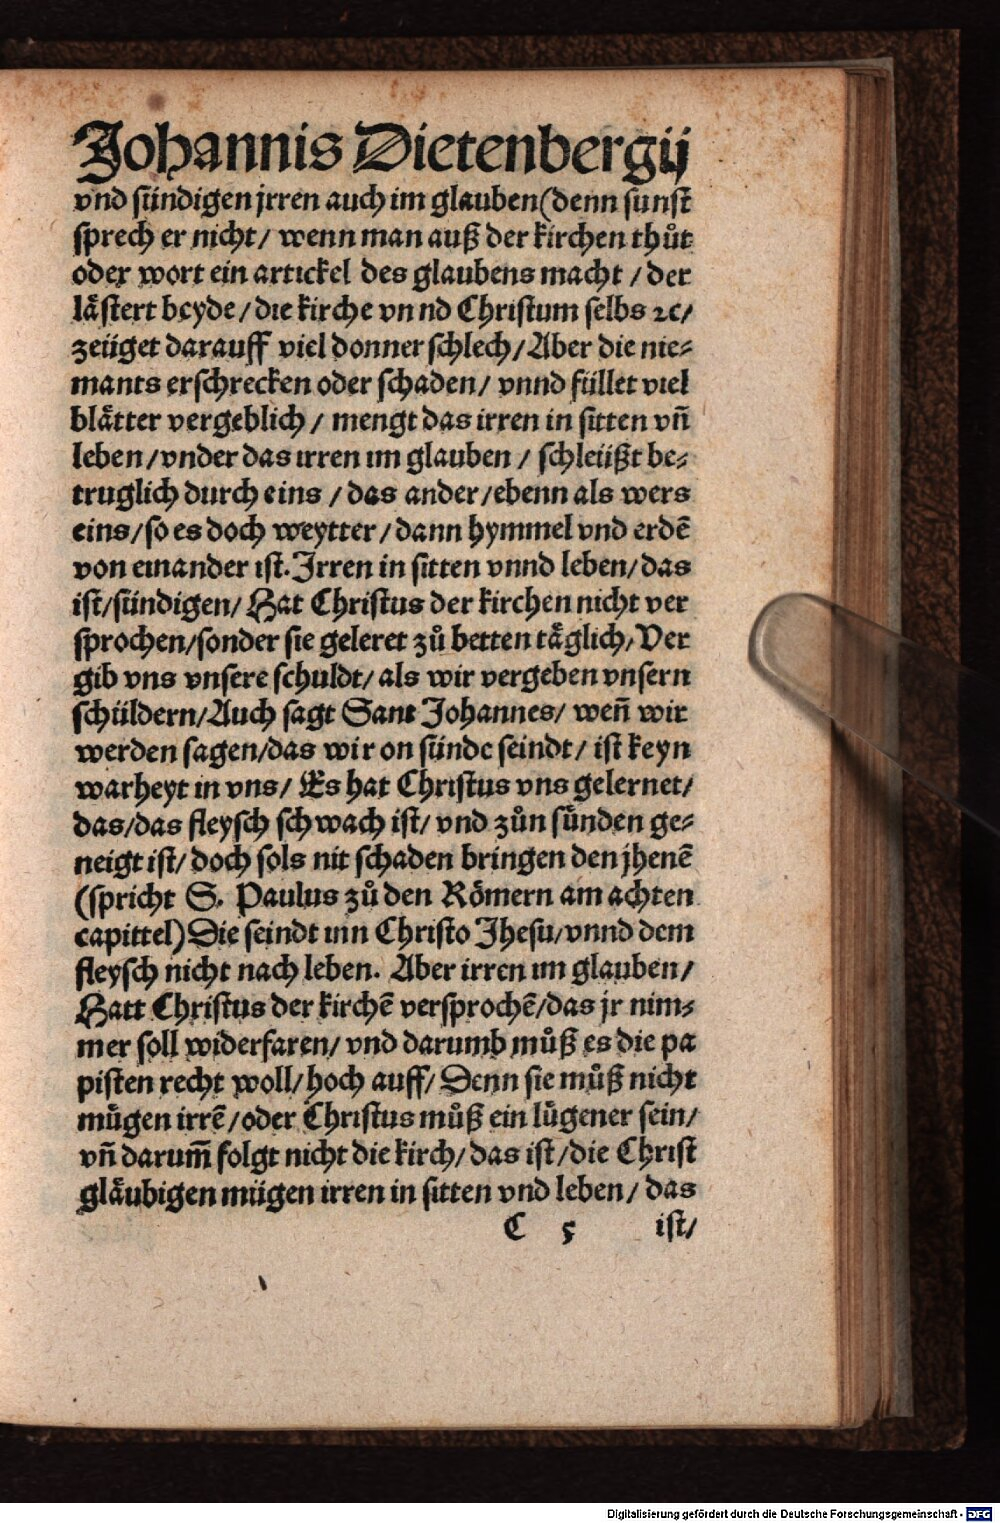 Johannis Dietenbergij
vnd sündigen jrren auch im glauben (denn sunst
sprech er nicht / wenn man auß der kirchen thůt
oder wort ein artickel des glaubens macht / der
lästert beyde / die kirche vnnd Christum selbs ⁊c /
zeüget darauff viel donner schlech / Aber die nie⸗
mants erschrecken oder schaden / vnnd füllet viel
blätter vergeblich / mengt das irren in sitten vñ
leben / vnder das irren im glauben / schleüßt be⸗
truglich durch eins / das ander / ebenn als wers
eins / so es doch weytter / dann hymmel vnd erdē
von einander ist. Irren in sitten vnnd leben / das
ist / sündigen / Hat Christus der kirchen nicht ver
sprochen / sonder sie geleret zů betten täglich / Ver
gib vns vnsere schuldt / als wir vergeben vnsern
schüldern / Auch sagt Sant Johannes / weñ wir
werden sagen / das wir on sünde seindt / ist keyn
warheyt in vns / Es hat Christus vns gelernet /
das / das fleysch schwach ist / vnd zůn sünden ge⸗
neigt ist / doch sols nit schaden bringen den jhenē
(spricht S. Paulus zů den Römern am achten
capittel) Die seindt inn Christo Jhesu / vnnd dem
fleysch nicht nach leben. Aber irren im glauben /
Hatt Christus der kirchē versprochē / das jr nim⸗
mer soll widerfaren / vnd darumb můß es die pa
pisten recht woll / hoch auff / Denn sie můß nicht
mügen irrē / oder Christus můß ein lügener sein /
vñ darum̃ folgt nicht die kirch / das ist / die Christ
gläubigen mügen irren in sitten vnd leben / das
C 5 ist /
Digitalisierung gefördert durch die Deutsche Forschungsgemeinschaft - DFG